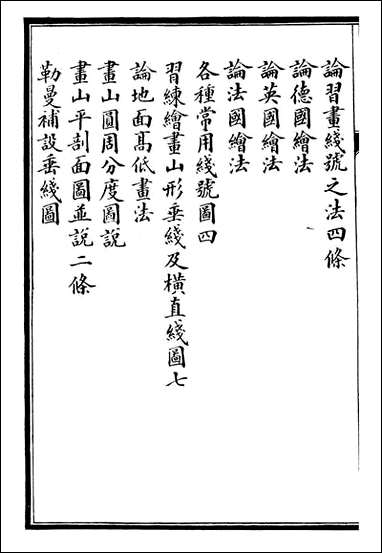 論習畫綫號之法四條
論德國繪法
論英國繪法
論法國繪法
各種常用綫號圖四
習練繪畫山形垂綫及橫直綫圖七
論地面高低畫法
畫山圓周分度圖說
畫山平剖面圖並說二條
勒曼補設垂綫圖